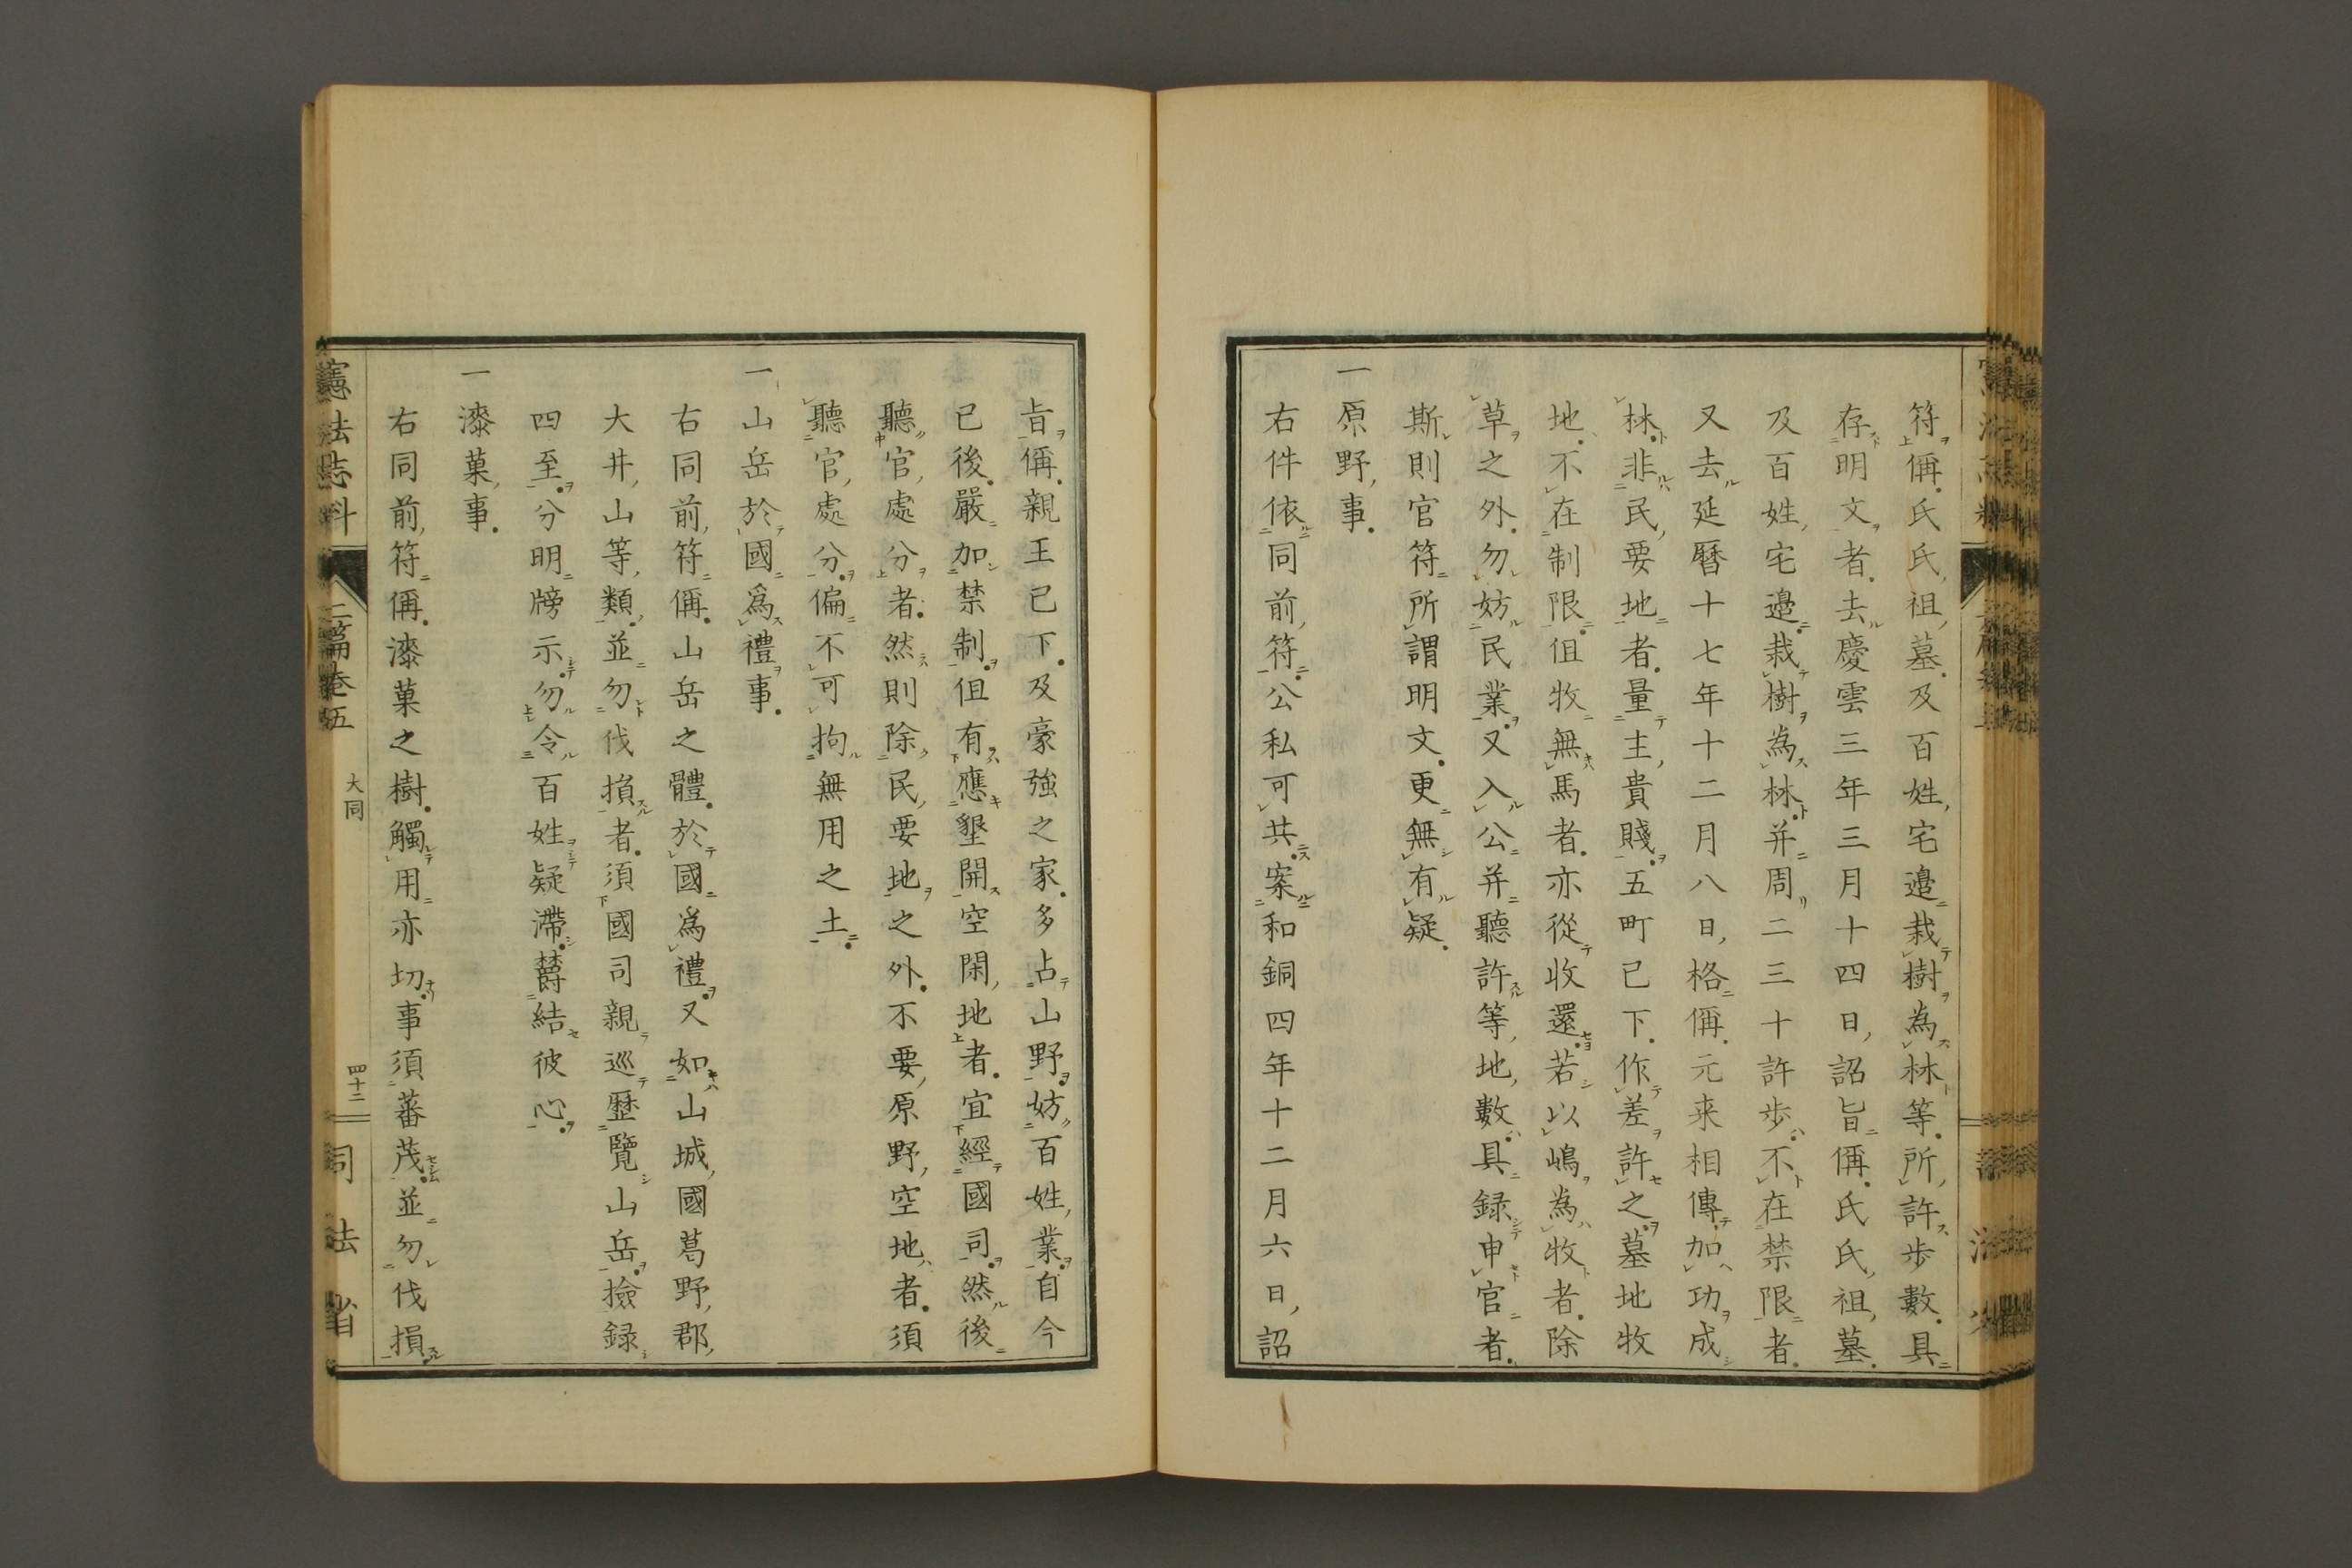 符偁氏氏祖墓及百姓宅邉栽樹為林等所許歩數具
存明文者去慶雲三年三月十四日詔旨偁氏氏祖墓
及百姓宅邉栽樹為林并周二三十許歩不在禁限者
又去延曆十七年十二月八日格偁元来相傳加功成
林非民要地者量主貴賤五町已下作差許之墓地牧
地不在制限但牧無馬者亦從收還若以嶋為牧者除
草之外勿妨民業又入公并聽許等地數具録申官者
斯則官符所謂明文更無有疑
一原野事
右件依同前符公私可共案和銅四年十二月六日詔
旨偁親王已下及豪強之家多占山野妨百姓業自今
已後嚴加禁制但有應墾開空閑地者宜經國司然後
聽官處分者然則除民要地之外不要原野空地者須
聽官處分偏不可拘無用之土
一山岳於國爲禮事
右同前符偁山岳之體於國爲禮又如山城國葛野郡
大井山等類並勿伐損者須國司親巡歷覽山岳撿録
四至分明牓示勿令百姓疑滯欝結彼心
一漆菓事
右同前符偁漆菓之樹觸用亦切事須蕃茂並勿伐損
憲法志料 二篇卷五 大同 四十二 司法省